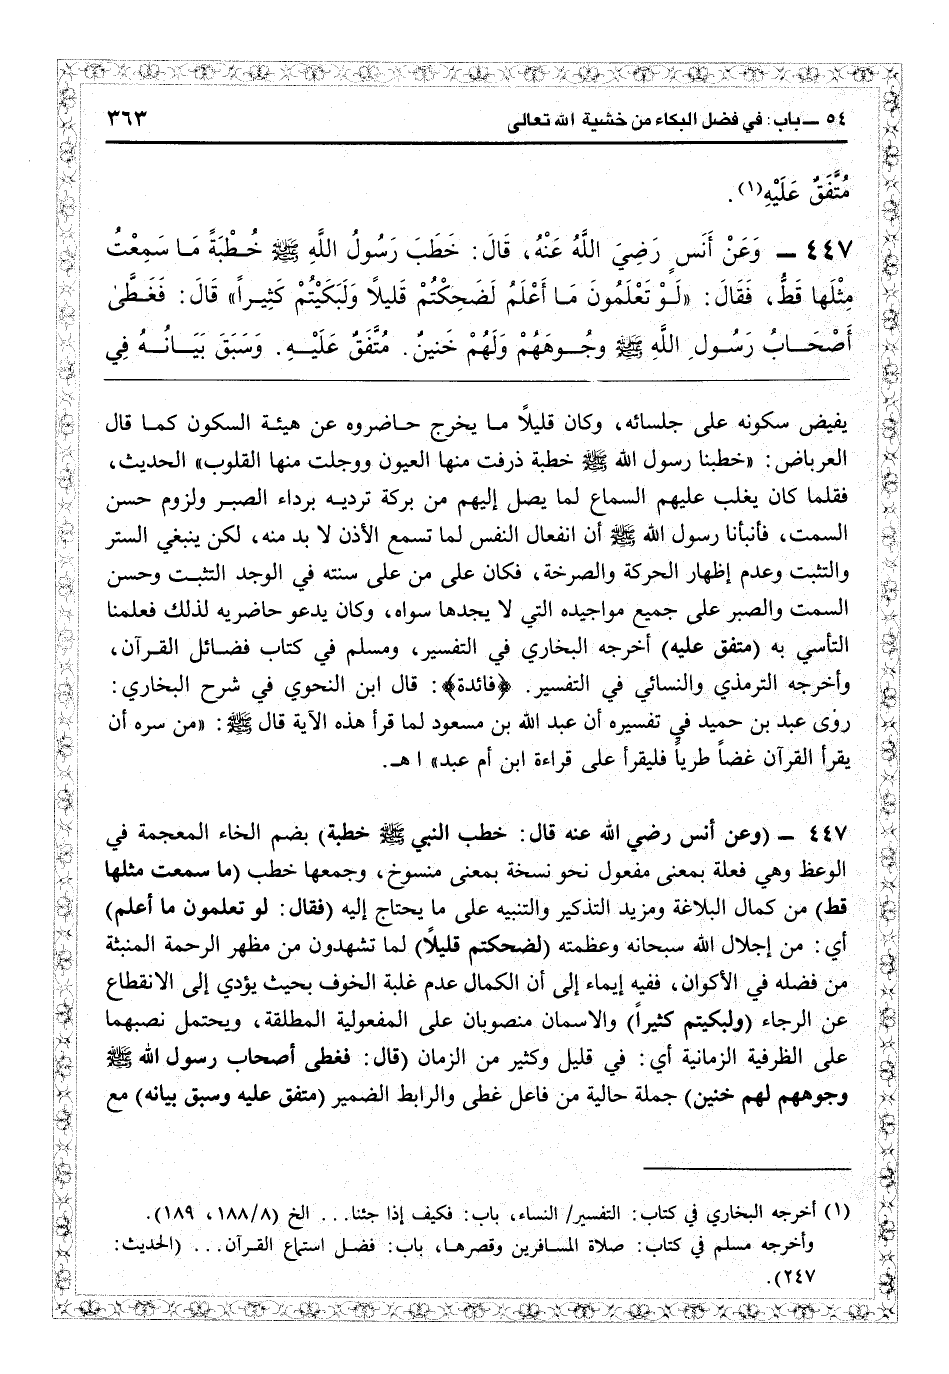 ٥٤ ــ باب: في فضل البكاء من خشية الله تعالى ٣٦٣
مُتَّفَقٌ عَلَيْهِ(١).
٤٤٧ ــ وَعَنْ أَنَسٍ رَضِيَ اللَّهُ عَنْهُ، قَالَ: خَطَبَ رَسُولُ اللَّهِ ﷺ خُطْبَةً مَا سَمِعْتُ
مِثْلَها قَطُّ، فَقَالَ: «لَوْ تَعْلَمُونَ مَا أَعْلَمُ لَضَحِكْتُمْ قَلِيلاً وَلَبَكَيْتُمْ كَثِيراً» قَالَ: فَغَطَّىٰ
أَصْحَابُ رَسُولِ اللَّهِ ﷺ وجُوهَهُمْ وَلَهُمْ خَنِينٌ. مُتَّفَقٌ عَلَيْهِ. وَسَبَقَ بَيَانُهُ فِي
يفيض سكونه على جلسائه، وكان قليلاً ما يخرج حاضروه عن هيئة السكون كما قال
العرباض: «خطبنا رسول الله ﷺ خطبة ذرفت منها العيون ووجلت منها القلوب» الحديث،
فقلما كان يغلب عليهم السماع لما يصل إليهم من بركة ترديه برداء الصبر ولزوم حسن
السمت، فأنبأنا رسول الله ﷺ أن انفعال النفس لما تسمع الأذن لا بد منه، لكن ينبغي الستر
والتثبت وعدم إظهار الحركة والصرخة، فكان على من على سنته في الوجد التثبت وحسن
السمت والصبر على جميع مواجيده التي لا يجدها سواه، وكان يدعو حاضريه لذلك فعلمنا
التأسي به (متفق عليه) أخرجه البخاري في التفسير، ومسلم في كتاب فضائل القرآن،
وأخرجه الترمذي والنسائي في التفسير. ﴿فائدة﴾: قال ابن النحوي في شرح البخاري:
روى عبد بن حميد في تفسيره أن عبد الله بن مسعود لما قرأ هذه الآية قال ﷺ: «من سره أن
يقرأ القرآن غضاً طرياً فليقرأ على قراءة ابن أم عبد» ا هـ.
٤٤٧ ــ (وعن أنس رضي الله عنه قال: خطب النبي ﷺ خطبة) بضم الخاء المعجمة في
الوعظ وهي فعلة بمعنى مفعول نحو نسخة بمعنى منسوخ، وجمعها خطب (ما سمعت مثلها
قط) من كمال البلاغة ومزيد التذكير والتنبيه على ما يحتاج إليه (فقال: لو تعلمون ما أعلم)
أي: من إجلال الله سبحانه وعظمته (لضحكتم قليلاً) لما تشهدون من مظهر الرحمة المنبئة
من فضله في الأكوان، ففيه إيماء إلى أن الكمال عدم غلبة الخوف بحيث يؤدي إلى الانقطاع
عن الرجاء (ولبكيتم كثيراً) والاسمان منصوبان على المفعولية المطلقة، ويحتمل نصبهما
على الظرفية الزمانية أي: في قليل وكثير من الزمان (قال: فغطى أصحاب رسول الله ﷺ
وجوههم لهم خنين) جملة حالية من فاعل غطى والرابط الضمير (متفق عليه وسبق بيانه) مع
(١) أخرجه البخاري في كتاب: التفسير/ النساء، باب: فكيف إذا جئنا... الخ (١٨٨/٨، ١٨٩).
وأخرجه مسلم في كتاب: صلاة المسافرين وقصرها، باب: فضل استماع القرآن... (الحديث:
٢٤٧).